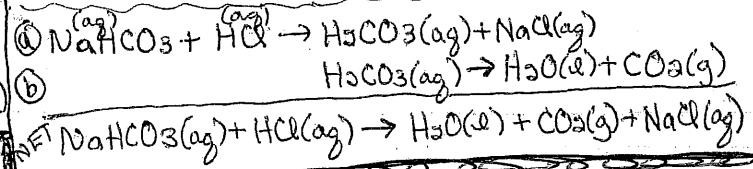 (aq) (aq)
ⓐ NaHCO₃ + HCl → H₂CO₃(aq) + NaCl(aq)
ⓑ H₂CO₃(aq) → H₂O(l) + CO₂(g)
NET NaHCO₃(aq) + HCl(aq) → H₂O(l) + CO₂(g) + NaCl(aq)